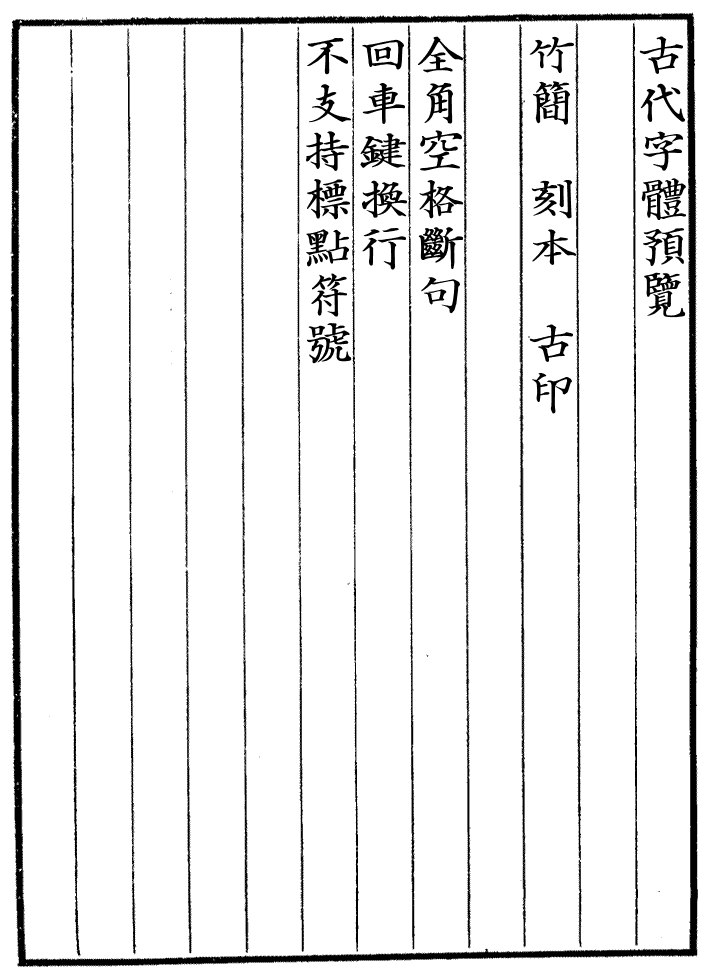 古代字體預覽
竹簡　刻本　古印
全角空格斷句
回車鍵換行
不支持標點符號